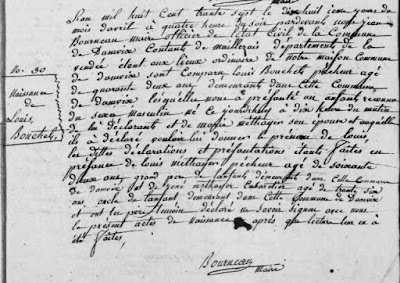 L'an mil huit Cent trente sept le dix huit ieme jour du
mois d'avril à quatre heure du soir pardevant nous jean
Bourneau maire officier de l'état Civil de la Commune
de Damvix Canton de maillezais département de la
vendée étant aux lieux ordinaire de notre maison Commune
de damvix sont comparu Louis Bouchets pêcheur agé
de quarante deux ans demeurant dans Cette Commune
lequelle nous a présanté un anfant reconnu
du sexe masculin né Ce jourdhui à dix heure du matin
de lui déclarant et de marie méthayer son épouse et auquelle
ils a déclaré vouloir lui donner le prénom de louis
les dittes déclarations et présantations étant faites en
présance de louis methayer pêcheur agé de soixante
deux ans grand per de l'anfant demeurant dans Cette Commune
de damvix et de René methayer Cabartier agé de trente
ans oncle de l'anfant demeurant dans Cette Commune de damvix
et ont les per témoins déclaré ne savoir signer avec nous
le présent actes de Naissance après que lecture leur en a
été faites,
No. 30
Naissance
de
Louis,
Bouchets,
Bourneau
maire